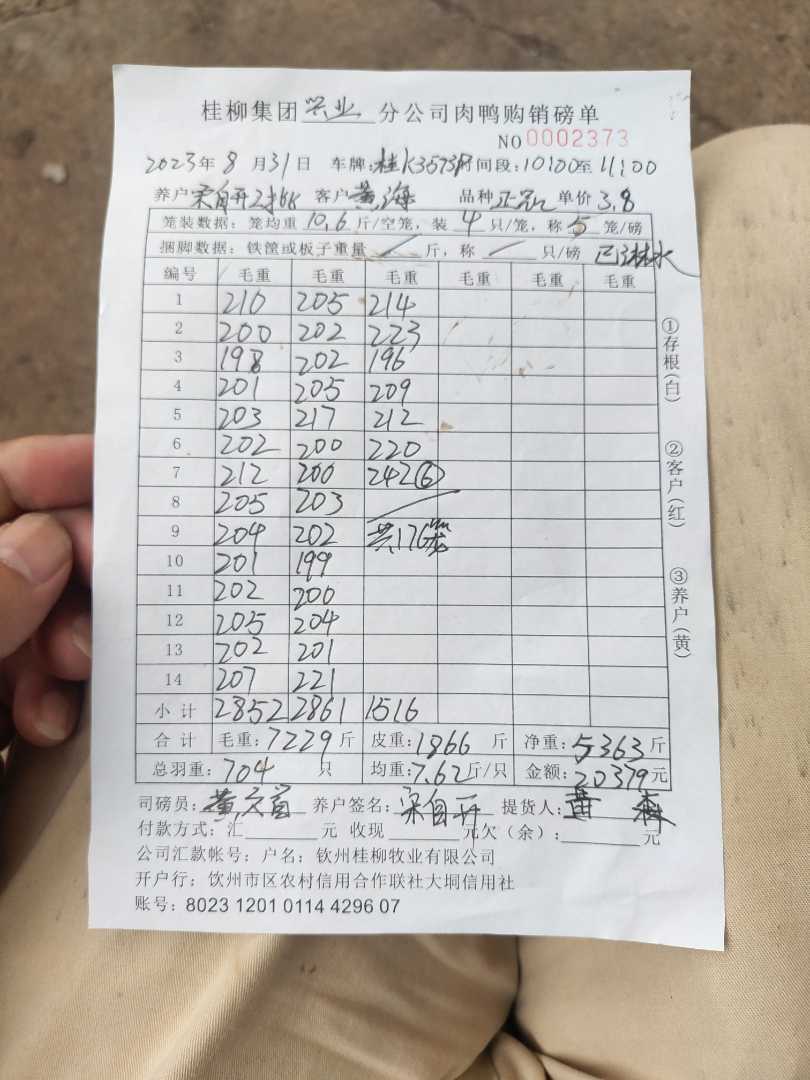 桂柳集团兴业分公司肉鸭购销磅单
NO 0002373
2023年8月31日 车牌:桂K3573 时间段:10:00至11:00
养户 宋自开2批 客户 黄海 品种 正品 单价 3.8
笼装数据: 笼均重 10.6 斤/空笼, 装 4 只/笼, 称 5 笼/磅
捆脚数据: 铁筐或板子重量 / 斤, 称 / 只/磅 已淋水
编号 毛重 毛重 毛重 毛重 毛重 毛重
1 210 205 214
2 200 202 223
3 198 202 196
4 201 205 209
5 203 217 212
6 202 200 220
7 212 200 242⑥
8 205 203
9 204 202 共176笼
10 201 199
11 202 200
12 205 204
13 202 201
14 207 221
小计 2852 2861 1516
合计 毛重:7229斤 皮重:1866 斤 净重:5363斤
总羽重:704 只 均重:7.62斤/只 金额:20379元
司磅员: 养户签名:宋自开 提货人:黄森
付款方式:汇 元 收现 元欠(余): 元
公司汇款帐号: 户名: 钦州桂柳牧业有限公司
开户行: 饮州市区农村信用合作联社大垌信用社
账号: 8023 1201 0114 4296 07
①存根(白)
②客户(红)
③养户(黄)